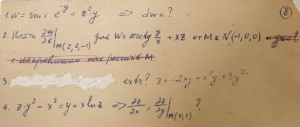 1. w = sin x e^{-y} + z²y ⟹ dw = ?
⑧
2. Найти ∂w/∂e |_{M(2,2,-1)} где w = arctg y/x + xz от M к N(-1,0,0)
3. extr? z = -2xy + x²y + 3y²
4. z·y² - x³ + y = x ln z ⟹ ∂z/∂x, ∂z/∂y |_{M(0,1)} ?